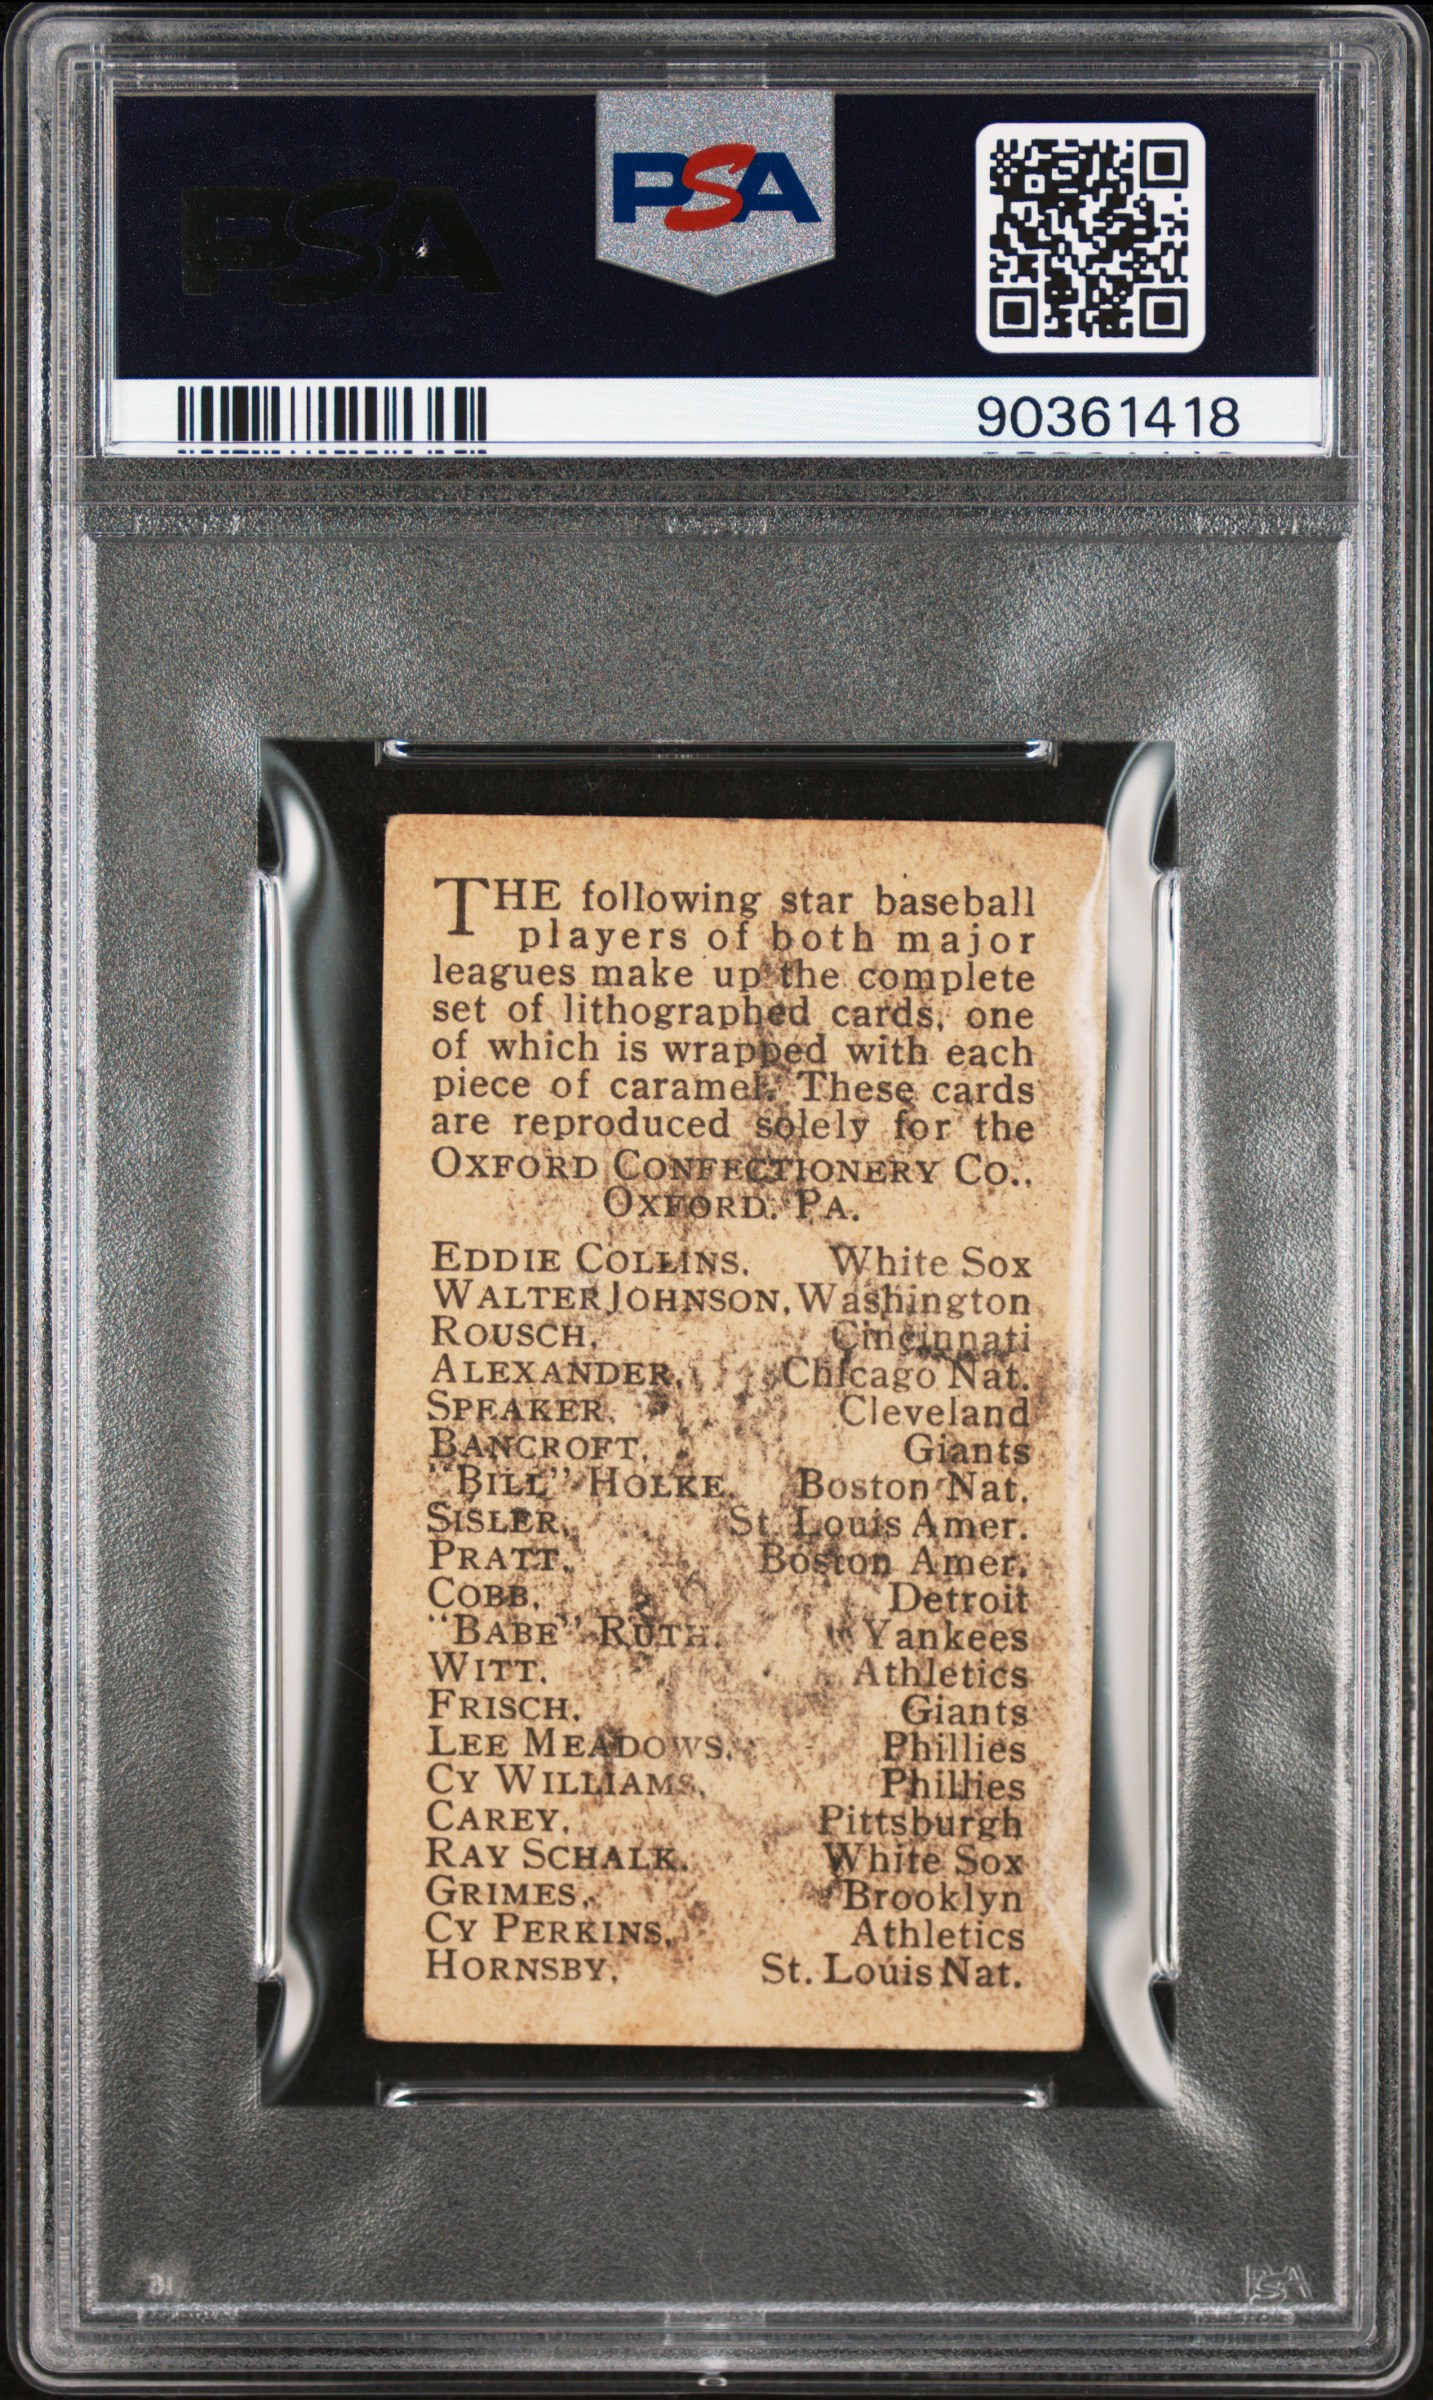 PSA
PSA
90361418
THE following star baseball
players of both major
leagues make up the complete
set of lithographed cards, one
of which is wrapped with each
piece of caramel. These cards
are reproduced solely for the
OXFORD CONFECTIONERY CO.,
OXFORD, PA.
EDDIE COLLINS, White Sox
WALTER JOHNSON, Washington
ROUSCH, Cincinnati
ALEXANDER, Chicago Nat.
SPEAKER, Cleveland
BANCROFT, Giants
"BILL" HOLKE, Boston Nat.
SISLER, St. Louis Amer.
PRATT, Boston Amer.
COBB, Detroit
"BABE" RUTH, Yankees
WITT, Athletics
FRISCH, Giants
LEE MEADOWS, Phillies
CY WILLIAMS, Phillies
CAREY, Pittsburgh
RAY SCHALK, White Sox
GRIMES, Brooklyn
CY PERKINS, Athletics
HORNSBY, St. Louis Nat.
PSA